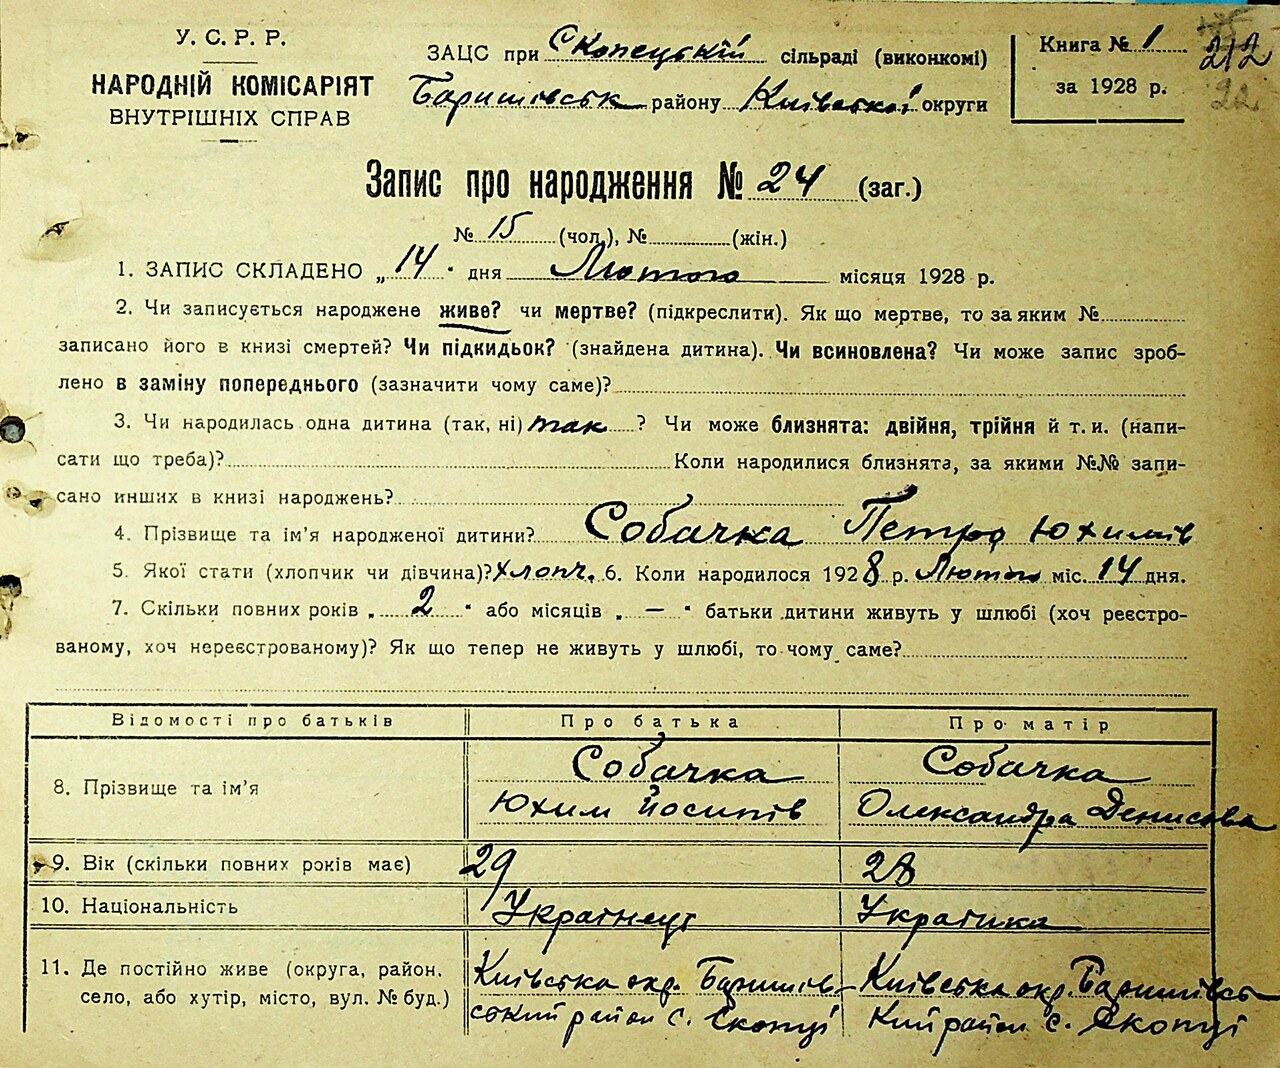 У. С. Р. Р.
НАРОДНІЙ КОМІСАРІЯТ
ВНУТРІШНІХ СПРАВ
ЗАЦС при Скопецькій сільраді (виконкомі)
Баришівськ району Київської округи
Книга № 1
за 1928 р.
212
22
Запис про народження № 24 (заг.)
№ 15 (чол.), № (жін.)
1. ЗАПИС СКЛАДЕНО „14" дня Лютого місяця 1928 р.
2. Чи записується народжене живе? чи мертве? (підкреслити). Як що мертве, то за яким №
записано його в книзі смертей? Чи підкидьок? (знайдена дитина). Чи всиновлена? Чи може запис зроб-
лено в заміну попереднього (зазначити чому саме)?
3. Чи народилась одна дитина (так, ні) так ? Чи може близнята: двійня, трійня й т. и. (напи-
сати що треба)? Коли народилися близнята, за якими №№ запи-
сано инших в книзі народжень?
4. Прізвище та ім'я народженої дитини? Собачка Петро Юхимів
5. Якої стати (хлопчик чи дівчина)? хлопч. 6. Коли народилося 1928 р. Лютого міс. 14 дня.
7. Скільки повних років „ 2 " або місяців „ — " батьки дитини живуть у шлюбі (хоч реєстро-
ваному, хоч нереєстрованому)? Як що тепер не живуть у шлюбі, то чому саме?
Відомості про батьків Про батька Про матір
8. Прізвище та ім'я Собачка Юхим Йосипів Собачка Олександра Денисова
9. Вік (скільки повних років має) 29 28
10. Національність Українець Українка
11. Де постійно живе (округа, район,
село, або хутір, місто, вул. № буд.)
Київська окр. Баришів-
ський район с. Скопці
Київська окр. Баришівсь
кий район с. Скопці